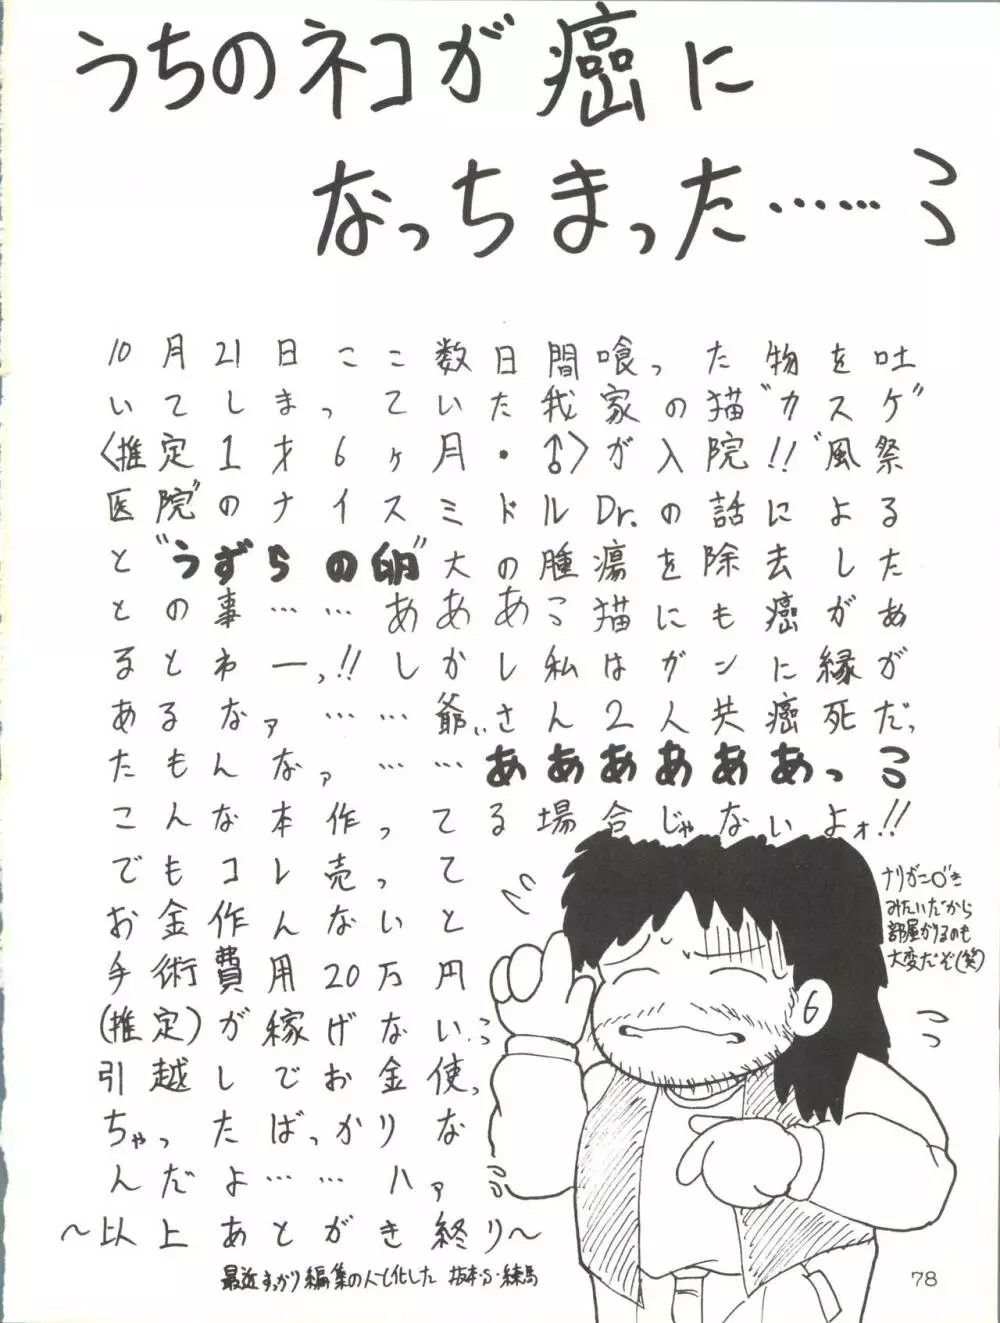 うちのネコが癌に
なっちまった……
10月21日ここ数日間喰った物を吐
いてしまっていた我家の猫"カスケ"
〈推定1才6ヶ月・♂〉が入院!!"風祭
医院"のナイスミドルDr.の話による
と"うずらの卵"大の腫瘍を除去した
との事……あああこ猫にも癌があ
るとわーっ!!しかし私はガンに縁が
あるなァ……爺ぃさん2人共癌死だっ
たもんなァ……ああああああっ
こんな本作ってる場合じゃないよォ!!
でもコレ売って
お金作んないと
手術費用20万円
(推定)が稼げない
引越しでお金使っ
ちゃったばっかりな
んだよ……ハァ
〜以上あとがき終り〜
最近すっかり編集の人と化した 坂本・S・練馬
みたいだから
部屋かりるのも
大変だぞ(笑)
6
78